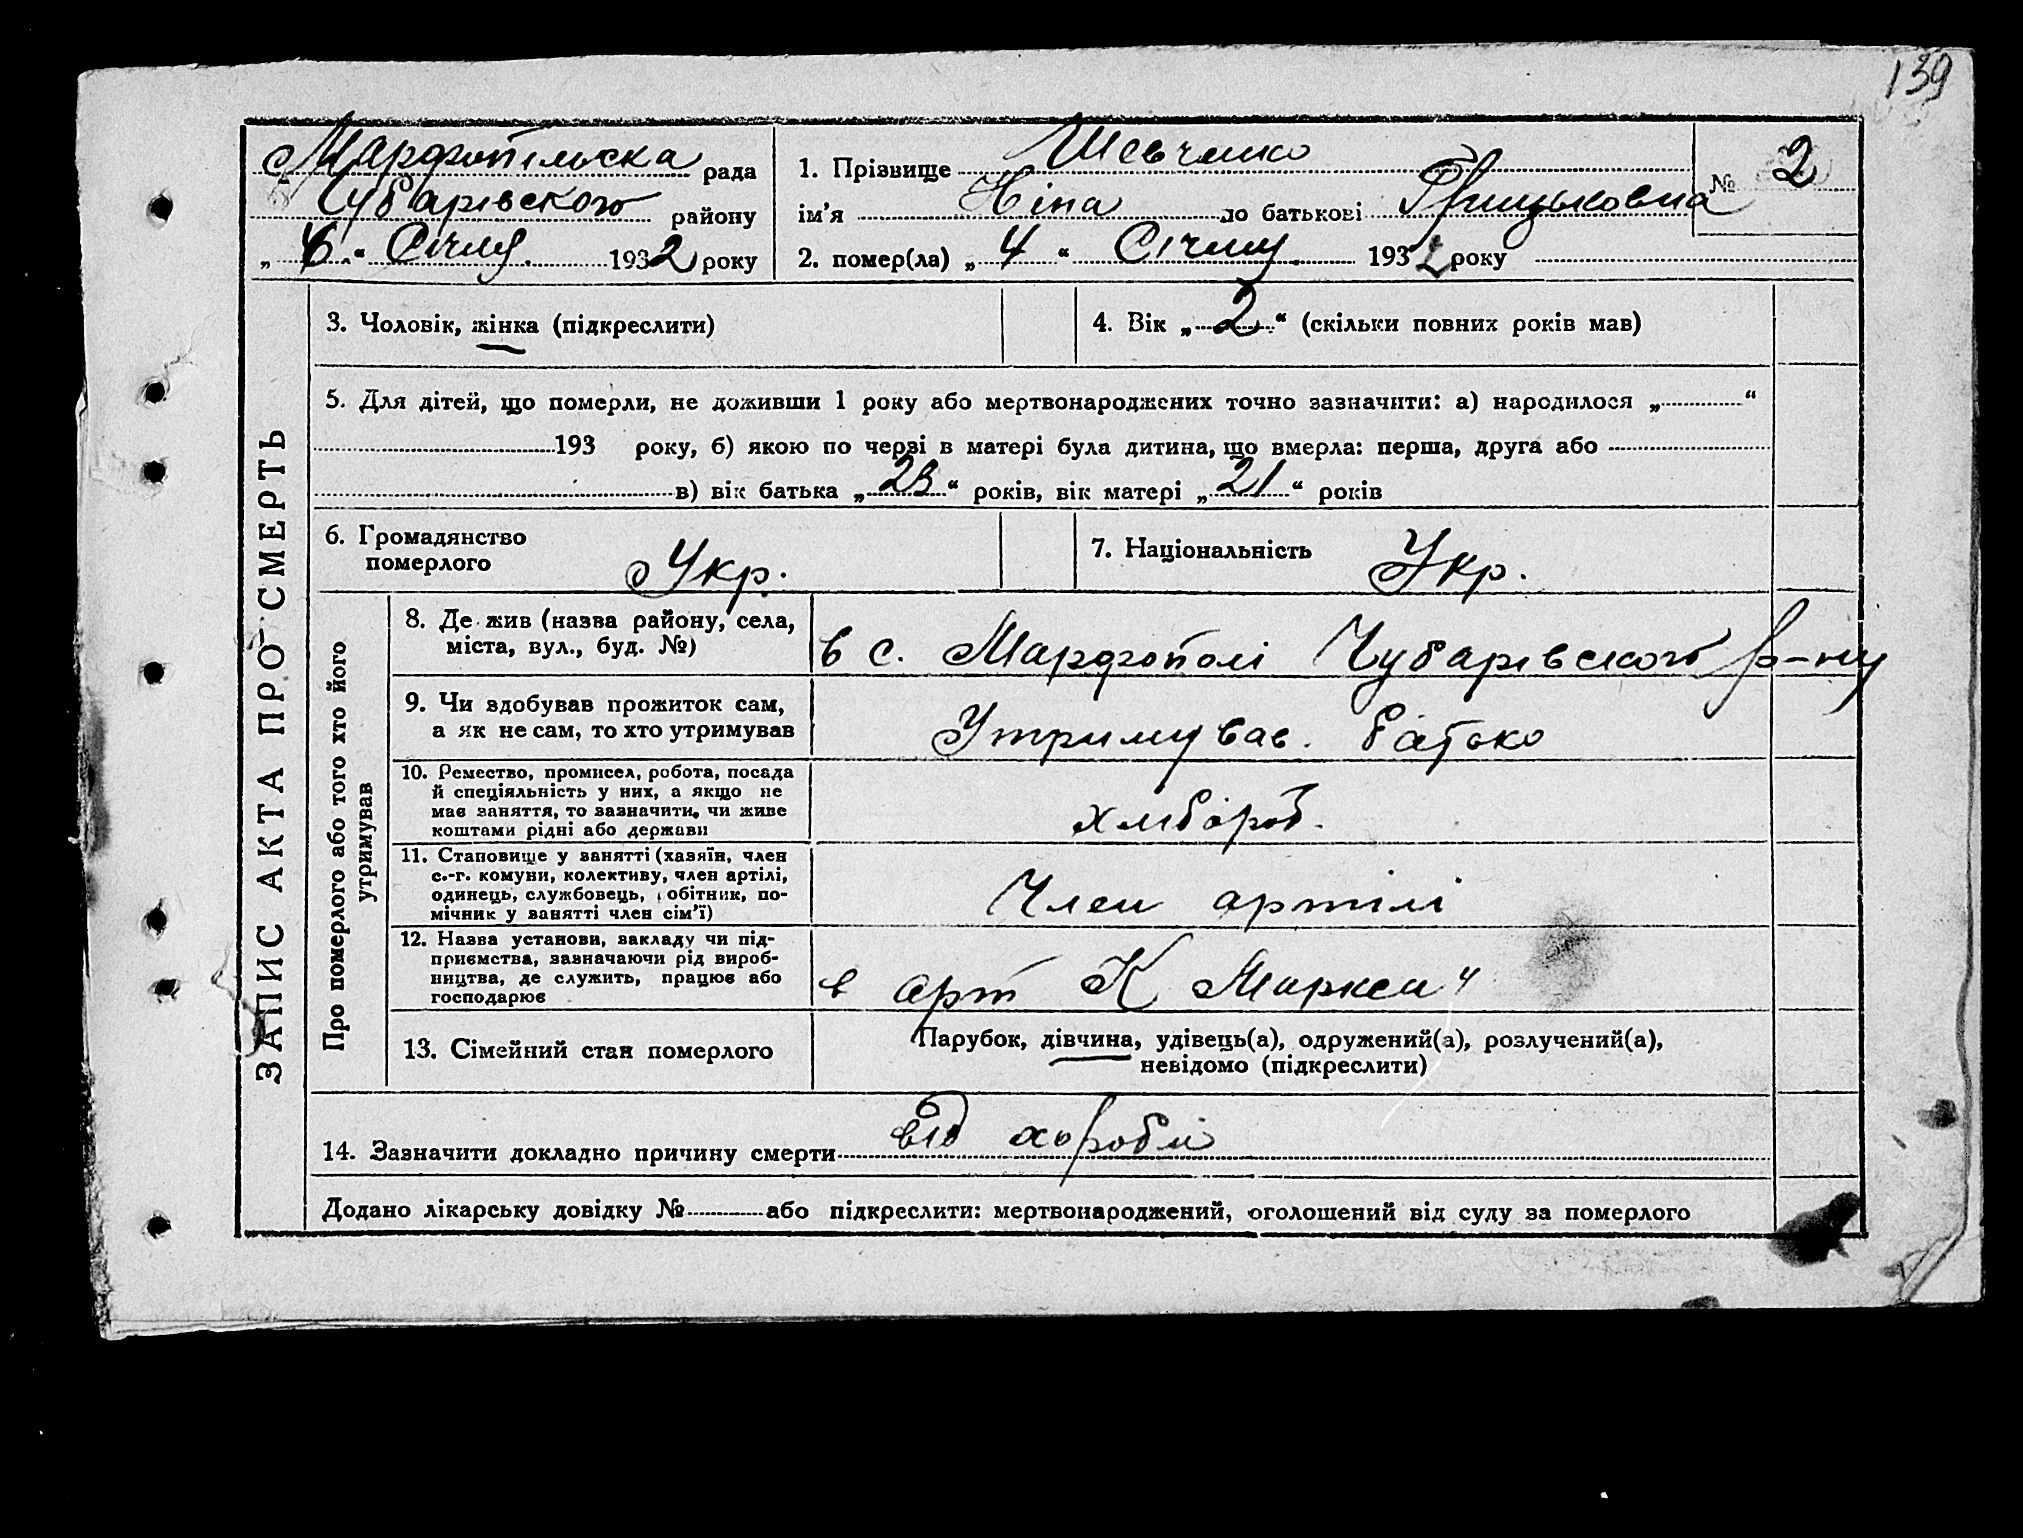 139
Марфопільська рада
Чубарівського району
„ 6 “ Січня 1932 року
1. Прізвище Шевченко
ім’я Ніна по батькові Грицьковна
№ 2
2. помер(ла) „ 4 “ Січня 1932 року
ЗАПИС АКТА ПРО СМЕРТЬ
3. Чоловік, жінка (підкреслити)
4. Вік „ 2 “ (скільки повних років мав)
5. Для дітей, що померли, не доживши 1 року або мертвонароджених точно зазначити: а) народилося „ “
193 року, б) якою по черзі в матері була дитина, що вмерла: перша, друга або
в) вік батька „ 23 “ років, вік матері „ 21 “ років
6. Громадянство
померлого Укр.
7. Національність Укр.
Про померлого або того хто його
утримував
8. Де жив (назва району, села,
міста, вул., буд. №)
в с. Марфополі Чубарівського р-ну
9. Чи здобував прожиток сам,
а як не сам, то хто утримував
Утримував. батько
10. Ремество, промисел, робота, посада
й спеціяльність у них, а якщо не
має заняття, то зазначити, чи живе
коштами рідні або держави
хлібороб.
11. Становище у занятті (хазяїн, член
с.-г. комуни, колективу, член артілі,
одинець, службовець, обітник, по-
мічник у занятті член сім’ї)
Член артілі
12. Назва установи, закладу чи під-
приємства, зазначаючи рід вироб-
ництва, де служить, працює або
господарює
в арт К Маркса "
13. Сімейний стан померлого
Парубок, дівчина, удівець(а), одружений(а), розлучений(а),
невідомо (підкреслити)
14. Зазначити докладно причину смерти від хороби
Додано лікарську довідку № або підкреслити: мертвонароджений, оголошений від суду за померлого